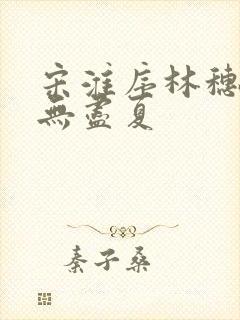 宋淮序林穗
無盡夏
秦子桑